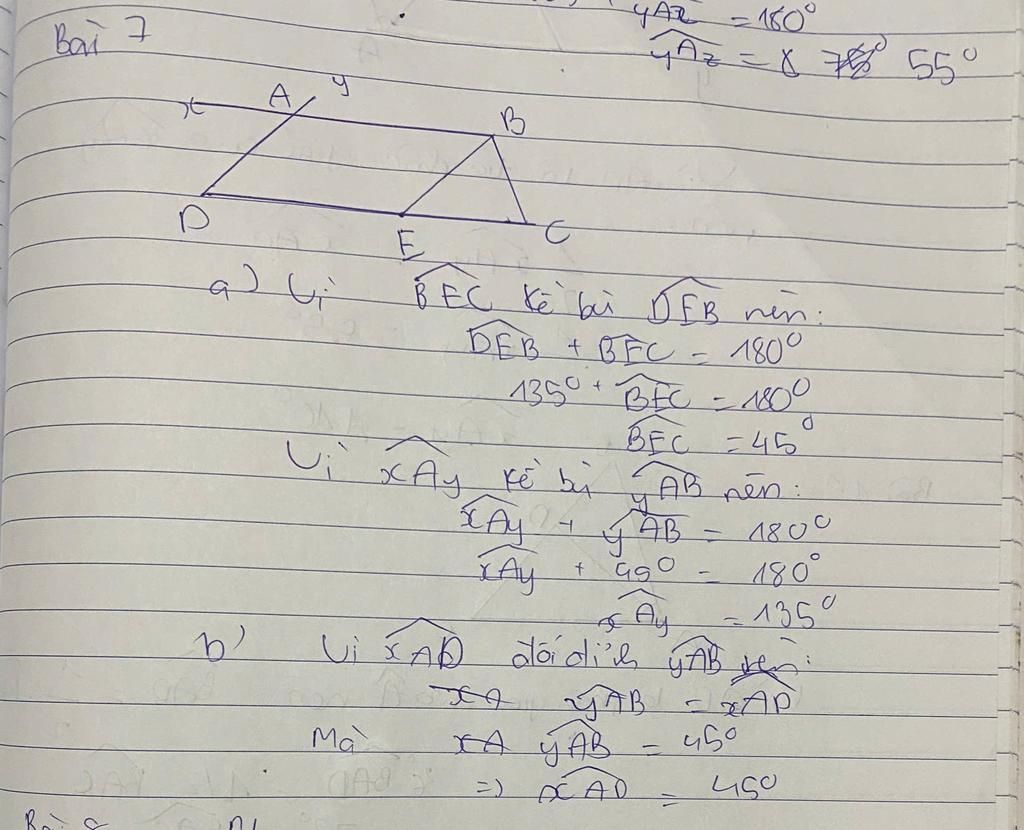 yAz = 180°
Bài 7
yAz = 55°
x A y B
D E C
a) Vì BEC kề bù DEB nên:
DEB + BEC = 180°
135° + BEC = 180°
BEC = 45°
Vì xAy kề bù yAB nên:
xAy + yAB = 180°
xAy + 45° = 180°
xAy = 135°
b) Vì xAD đối đỉnh yAB nên:
yAB = xAD
Mà yAB = 45°
=> xAD = 45°